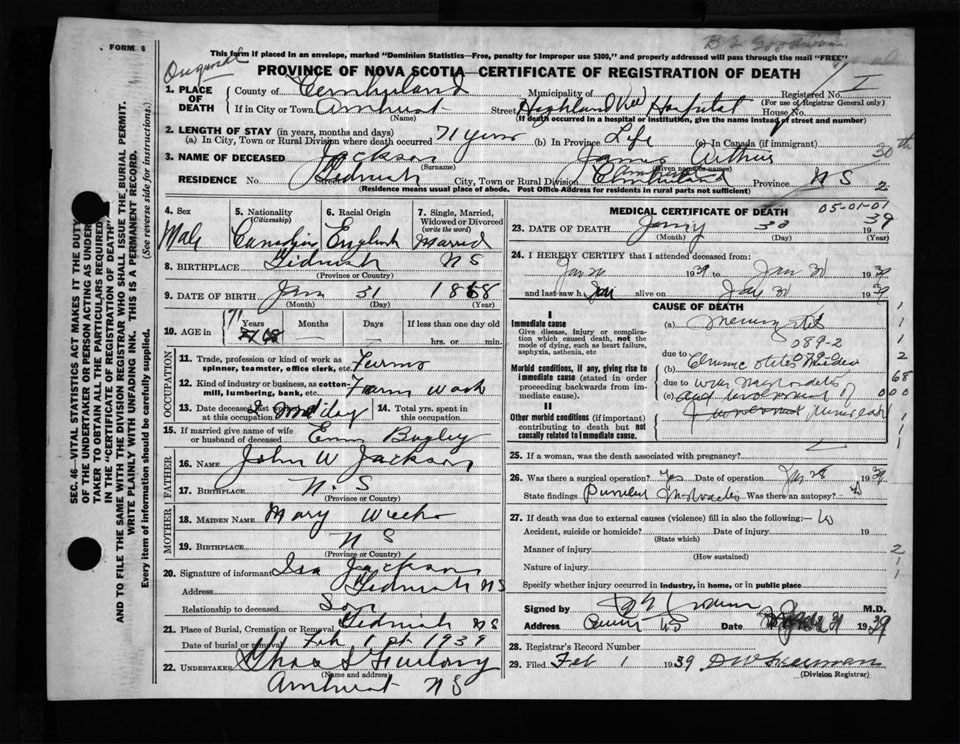 FORM 6
Original
This form if placed in an envelope, marked "Dominion Statistics—Free, penalty for improper use $300," and properly addressed will pass through the mail "FREE"
PROVINCE OF NOVA SCOTIA—CERTIFICATE OF REGISTRATION OF DEATH
1. PLACE OF DEATH County of Cumberland Municipality of Registered No. 1
(For use of Registrar General only)
If in City or Town Amherst Street Highland View Hospital House No.
(Name) (If death occurred in a hospital or institution, give the name instead of street and number)
2. LENGTH OF STAY (in years, months and days)
(a) In City, Town or Rural Division where death occurred 71 years (b) In Province Life (c) In Canada (if immigrant)
3. NAME OF DECEASED Jackson James Arthur 30th
(Surname) (Given name or names)
RESIDENCE No. Street Tidnish City, Town or Rural Division Cumberland Province N S 2
(Residence means usual place of abode. Post Office Address for residents in rural parts not sufficient)
SEC. 46—VITAL STATISTICS ACT MAKES IT THE DUTY
OF THE UNDERTAKER OR PERSON ACTING AS UNDER-
TAKER TO OBTAIN ALL THE PARTICULARS REQUIRED
IN THE "CERTIFICATE OF REGISTRATION OF DEATH"
AND TO FILE THE SAME WITH THE DIVISION REGISTRAR WHO SHALL ISSUE THE BURIAL PERMIT.
WRITE PLAINLY WITH UNFADING INK. THIS IS A PERMANENT RECORD.
Every item of information should be carefully supplied. (See reverse side for instructions.)
4. Sex 5. Nationality (Citizenship) 6. Racial Origin 7. Single, Married, Widowed or Divorced (write the word)
Male Canadian English Married
8. BIRTHPLACE Tidnish N S
(Province or Country)
9. DATE OF BIRTH Jan 31 1868
(Month) (Day) (Year)
10. AGE in 71 Years Months Days If less than one day old
hrs. or min.
OCCUPATION
11. Trade, profession or kind of work as spinner, teamster, office clerk, etc.
12. Kind of industry or business, as cotton-mill, lumbering, bank, etc. Farm Work
13. Date deceased last worked at this occupation 14. Total yrs. spent in this occupation
15. If married give name of wife or husband of deceased
FATHER
16. NAME John W Jackson
17. BIRTHPLACE N. S
(Province or Country)
MOTHER
18. MAIDEN NAME Mary Weeks
19. BIRTHPLACE N S
(Province or Country)
20. Signature of informant Ira Jackson
Address Tidnish NS
Relationship to deceased Son
21. Place of Burial, Cremation or Removal Tidnish NS
Date of burial or removal Feb 1st 1939
22. UNDERTAKER Chas S Furlong
(Name and address)
Amherst N S
MEDICAL CERTIFICATE OF DEATH 05-01-01
23. DATE OF DEATH 30 1939
(Month) (Day) (Year)
24. I HEREBY CERTIFY that I attended deceased from:
Jan 1939 to Jan 1939
and last saw h alive on Jan 1939
CAUSE OF DEATH
I
Immediate cause
Give disease, injury or complication which caused death, not the mode of dying, such as heart failure, asphyxia, asthenia, etc
(a) Meningitis
089-2
due to
Morbid conditions, if any, giving rise to immediate cause (stated in order proceeding backwards from immediate cause).
(b) Chronic Otitis Media
due to
(c)
II
Other morbid conditions (if important) contributing to death but not causally related to immediate cause.
1
1
1
2
68
000
1
1
25. If a woman, was the death associated with pregnancy?
26. Was there a surgical operation? Yes Date of operation Jan 28 1939
State findings Mastoiditis Was there an autopsy?
27. If death was due to external causes (violence) fill in also the following:—
Accident, suicide or homicide? Date of injury 19
(State which)
Manner of injury
(How sustained)
Nature of injury
2
1
1
Specify whether injury occurred in industry, in home, or in public place
Signed by M.D.
Address Date 31 1939
28. Registrar's Record Number
29. Filed Feb 1 1939
(Division Registrar)